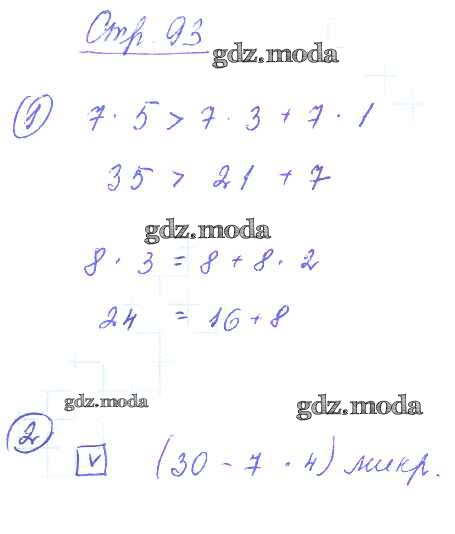 Стр. 93
gdz.moda
1 7 · 5 > 7 · 3 + 7 · 1
35 > 21 + 7
gdz.moda
8 · 3 = 8 + 8 · 2
24 = 16 + 8
gdz.moda
gdz.moda
2 v (30 - 7 · 4) микр.